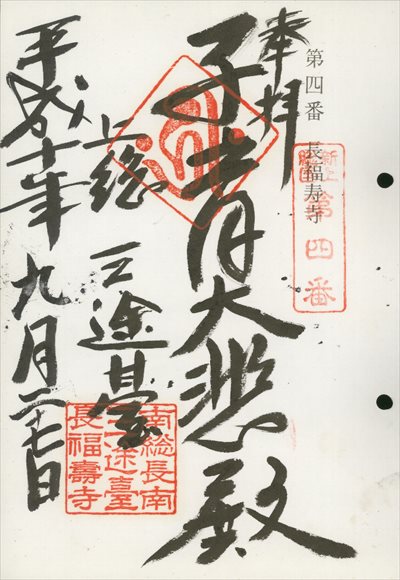 第四番 長福寿寺
第四番
奉拝
子育大悲殿
上総 三途臺
平成十年 九月二十七日
南総長南
三途臺
長福壽寺